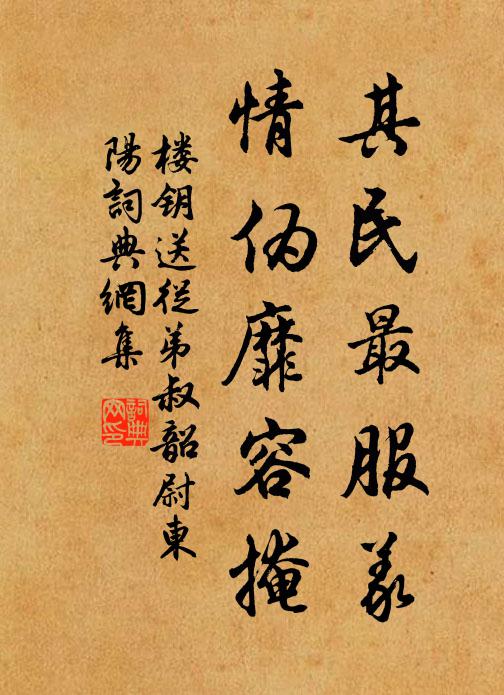 其民最服義
情偽靡容掩
楼钥送從弟叔韶尉東
陽詞典網集
詞典
网印